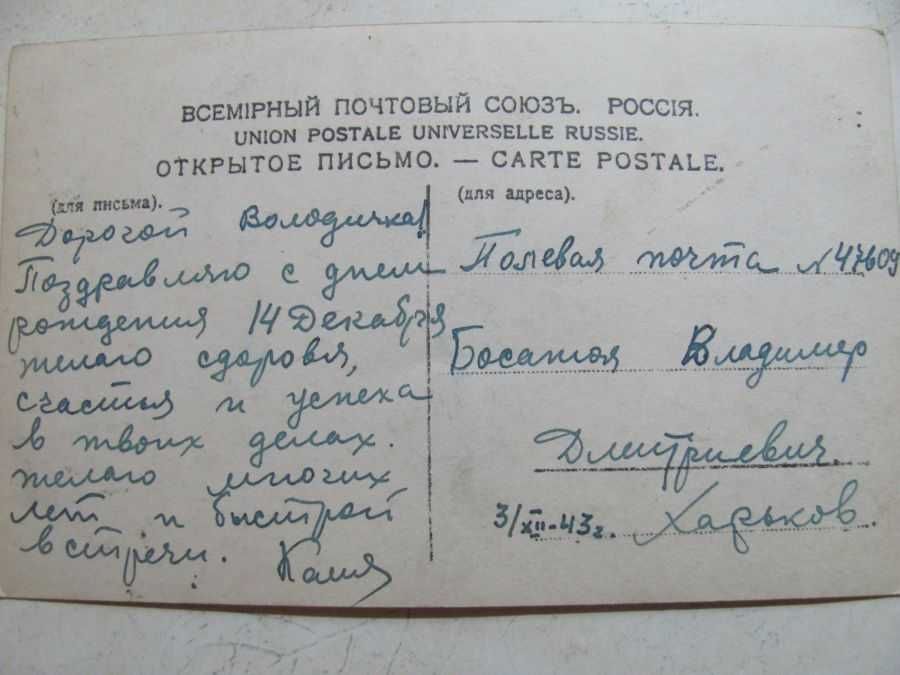 ВСЕМІРНЫЙ ПОЧТОВЫЙ СОЮЗЪ. РОССІЯ.
UNION POSTALE UNIVERSELLE RUSSIE.
ОТКРЫТОЕ ПИСЬМО. — CARTE POSTALE.
(для письма).
Дорогой Володичка!
Поздравляю с днем
рождения 14 Декабря
желаю здоровя,
счастья и успеха
в твоих делах.
желаю многих
лет и быстрой
встречи.
(для адреса).
Полевая почта № 47609
Владимер
Дмитриевич.
3/XII-43г. Харьков.